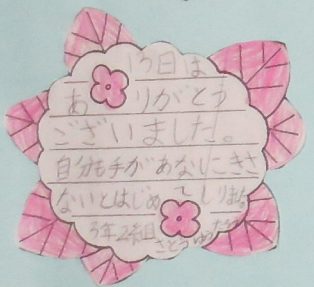 今日は
ありがとう
ございました。
自分も手があなしこきさ
ないとはじめてしりました
3年2組 さとう